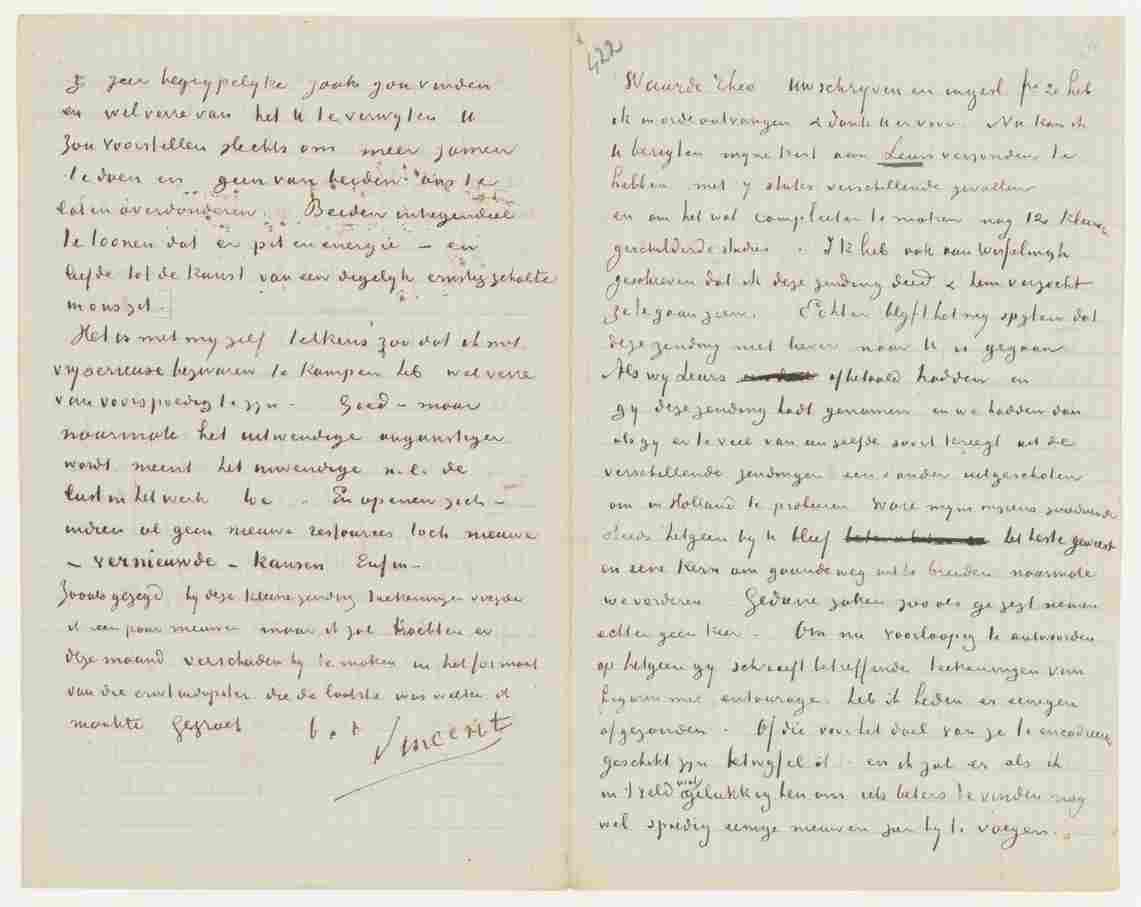 z. zeer begrypelyke zaak zou vinden
en wel verre van het U te verwyten U
zou voorstellen slechts om meer zamen
te doen en geen van beiden ons te
laten overdonderen. Beiden integendeel
te toonen dat er pit en energie – en
liefde tot de kunst van een degelyk ernstig gehalte
in ons zit.
Het is met my zelf telkens zoo dat ik met
vry serieuse bezwaren te kampen heb wel verre
van voorspoedig te zyn – Goed – maar
naarmate het uitwendige ongunstiger
wordt neemt het inwendige n.l. de
lust in het werk toe. En openen zich –
indien al geen nieuwe ressources toch nieuwe
– vernieuwde – kansen Enfin –
Zooals gezegd, by deze kleine zending teekeningen voegde
ik een paar nieuwe maar ik zal trachten er
deze maand verscheiden by te maken in het formaat
van die
maakte Gegroet b. à t. Vincent
422
Waarde Theo Uw schryven en ingesl. fr. 20 heb
ik in orde ontvangen & dank U er voor. Nu kan ik
U berigten myne kist aan Leurs verzonden te
hebben met 7 stuks verschillende gevallen
en om het wat completer te maken nog 12 kleine
geschilderde studies. Ik heb ook aan Wisselingh
geschreven dat ik deze zending deed & hem verzocht
ze te gaan zien. Echter blyft het my spyten dat
deze zending niet liever naar U is gegaan
Als wy Leurs afbetaald hadden en
gy deze zending hadt genomen en we hadden dan
als gy er te veel van een zelfde soort kreegt uit die
verschillende zendingen een & ander uitgeschoten
om in Holland te proberen ware myns inziens
steeds hetgeen by U bleef het beste geweest
en eene kern om gaandeweg uit te breiden naarmate
we vorderen. Gedane zaken zooals gezegd nemen
echter geen keer. Om nu voorloopig te antwoorden
op hetgeen gy schreeft betreffende teekeningen van
figuur met entourage, heb ik heden er eenigen
afgezonden. Of die voor het doel van ze te encadreren
geschikt zyn betwyfel ik – en ik zal er als ik
in 't veld wat gelukkig ben om iets beters te vinden nog
wel spoedig eenige nieuwen zien by te voegen.